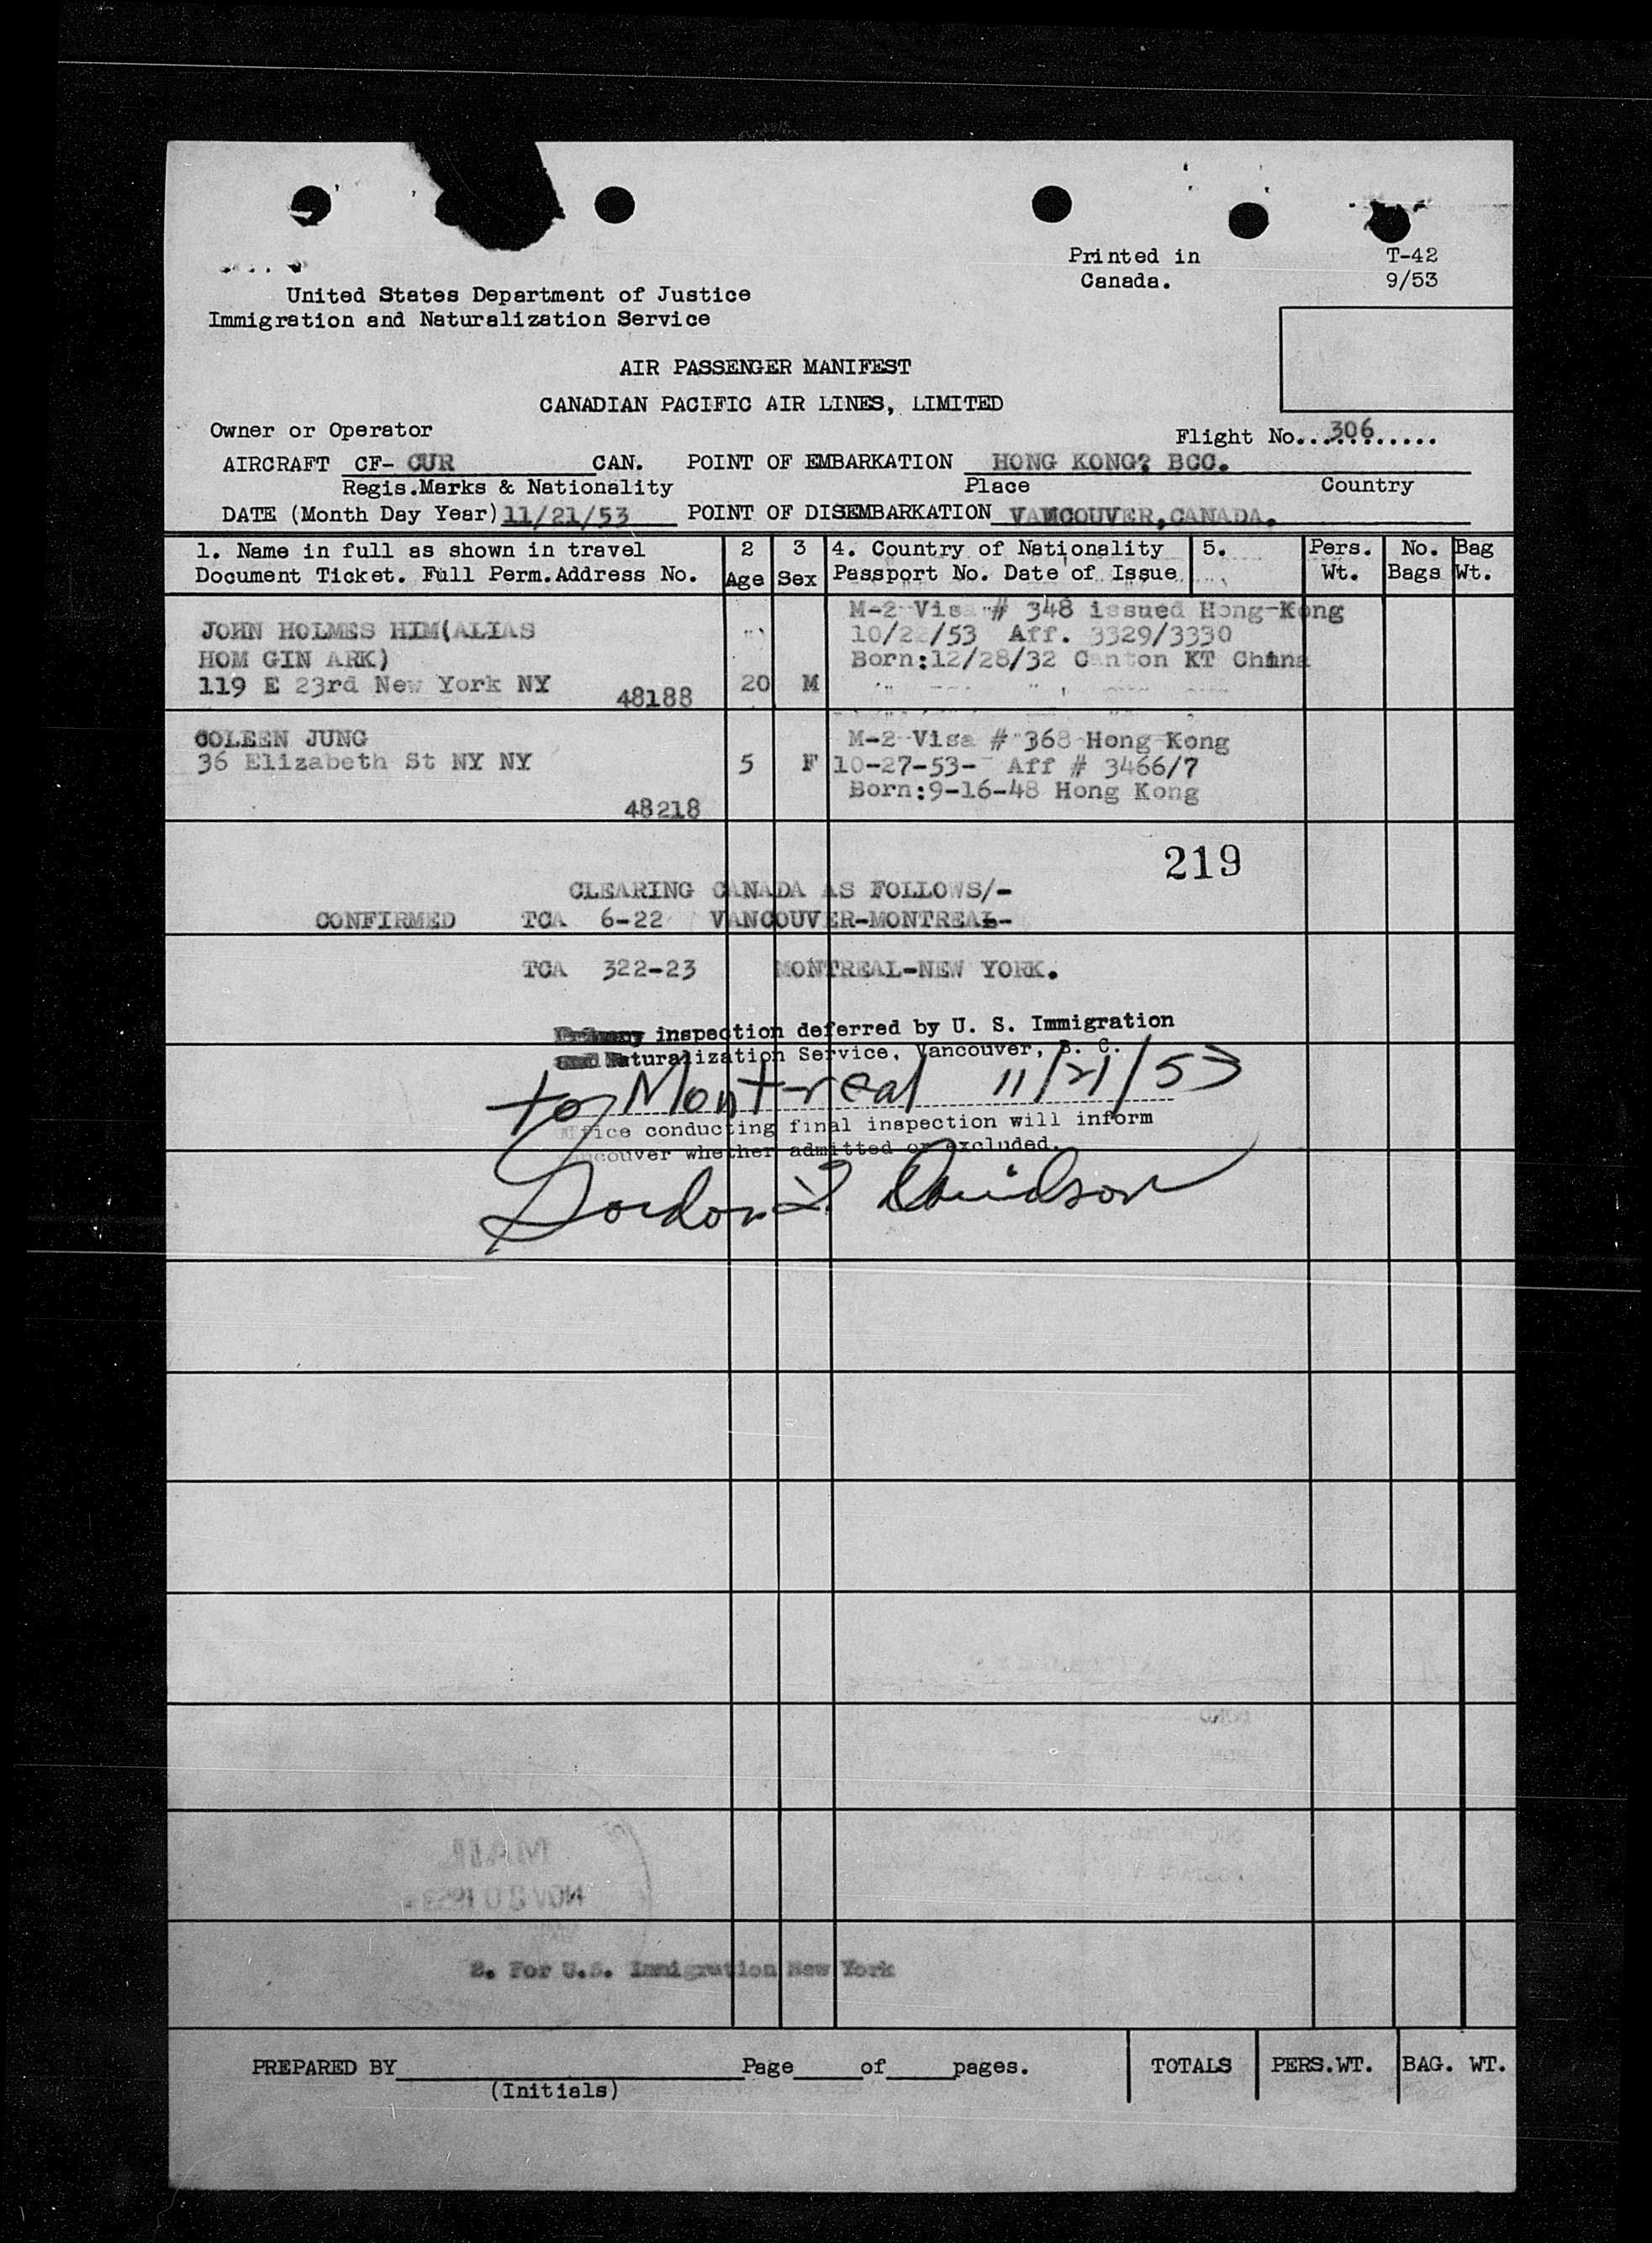 Printed in T-42
Canada. 9/53
United States Department of Justice
Immigration and Naturalization Service
AIR PASSENGER MANIFEST
CANADIAN PACIFIC AIR LINES, LIMITED
Owner or Operator Flight No...306...........
AIRCRAFT CF- CUR CAN. POINT OF EMBARKATION HONG KONG? BCC.
Regis.Marks & Nationality Place Country
DATE (Month Day Year) 11/21/53 POINT OF DISEMBARKATION VANCOUVER,CANADA.
1. Name in full as shown in travel 2 3 4. Country of Nationality 5. Pers. No. Bag
Document Ticket. Full Perm.Address No. Age Sex Passport No. Date of Issue Wt. Bags Wt.
M-2 Visa # 348 issued Hong-Kong
JOHN HOLMES HIM(ALIAS 10/22/53 Aff. 3329/3330
HOM GIN ARK) Born:12/28/32 Canton KT China
119 E 23rd New York NY 48188 20 M
COLEEN JUNG M-2 Visa # 368 Hong Kong
36 Elizabeth St NY NY 5 F 10-27-53- Aff # 3466/7
Born:9-16-48 Hong Kong
48218
219
CLEARING CANADA AS FOLLOWS/-
CONFIRMED TCA 6-22 VANCOUVER-MONTREAL-
TCA 322-23 MONTREAL-NEW YORK.
inspection deferred by U. S. Immigration
and Naturalization Service, Vancouver, B. C.
to Montreal 11/21/53
Office conducting final inspection will inform
Vancouver whether admitted or excluded.
Gordon Davidson
MAIL
NOV 20 1953
2. For U.S. Immigration New York
PREPARED BY Page of pages. TOTALS PERS.WT. BAG. WT.
(Initials)